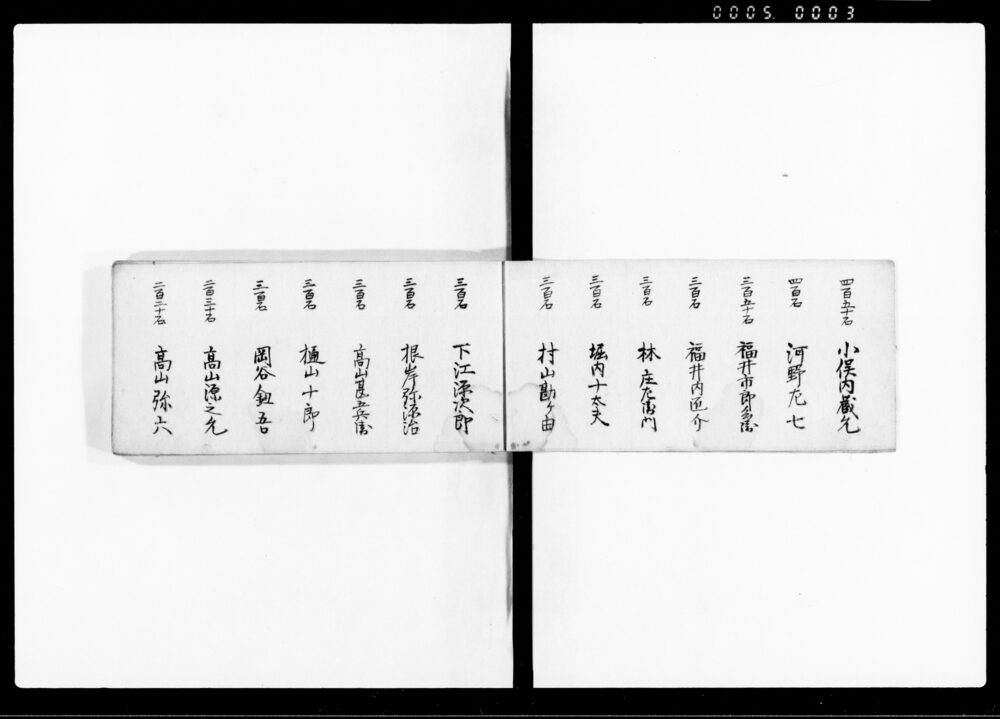 0005. 0003
四百五十石 小俣内蔵允
四百石 河野左七
三百五十石 福井市郎兵衛
三百石 福井内匠介
三百石 林庄左衛門
三百石 堀内十太夫
三百石 村山勘ケ由
三百石 下江源次郎
三百石 根岸弥源治
三百石 高山甚五兵衛
三百石 樋山十郎
三百石 岡谷釼吾
二百三十石 高山源之允
二百二十石 高山弥六